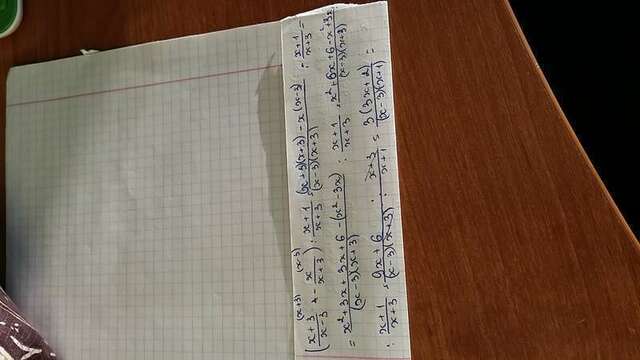 (x+3)/(x-3) ^(x+3) - x/(x+3) ^(x-3)) : (x+1)/(x+3) = ((x+3)(x+3) - x(x-3))/((x-3)(x+3)) : (x+1)/(x+3) =
= (x²+3x+3x+6-(x²-3x))/((x-3)(x+3)) : (x+1)/(x+3) = (x²+6x+6-x²+3x)/((x-3)(x+3))
: (x+1)/(x+3) = (9x+6)/((x-3)(x+3)) · (x+3)/(x+1) = 3(3x+2)/((x-3)(x+1)) =